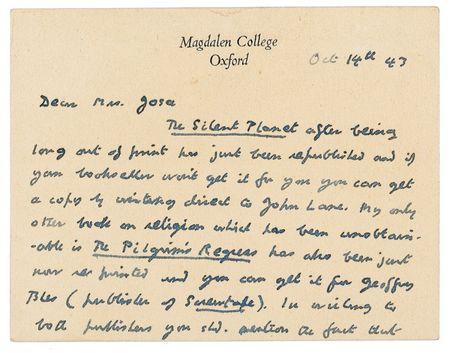 Magdalen College
Oxford
Oct 14th 43
Dear Mrs. Jose
The Silent Planet after being
long out of print has just been republished and if
your bookseller won't get it for you you can get
a copy by writing direct to John Lane. My only
other book on religion which has been unobtain-
-able is The Pilgrim's Regress has also been just
now re printed and you can get it fr Geoffrey
Bles (publisher of Screwtape). In writing to
both publishers you shd. mention the fact that